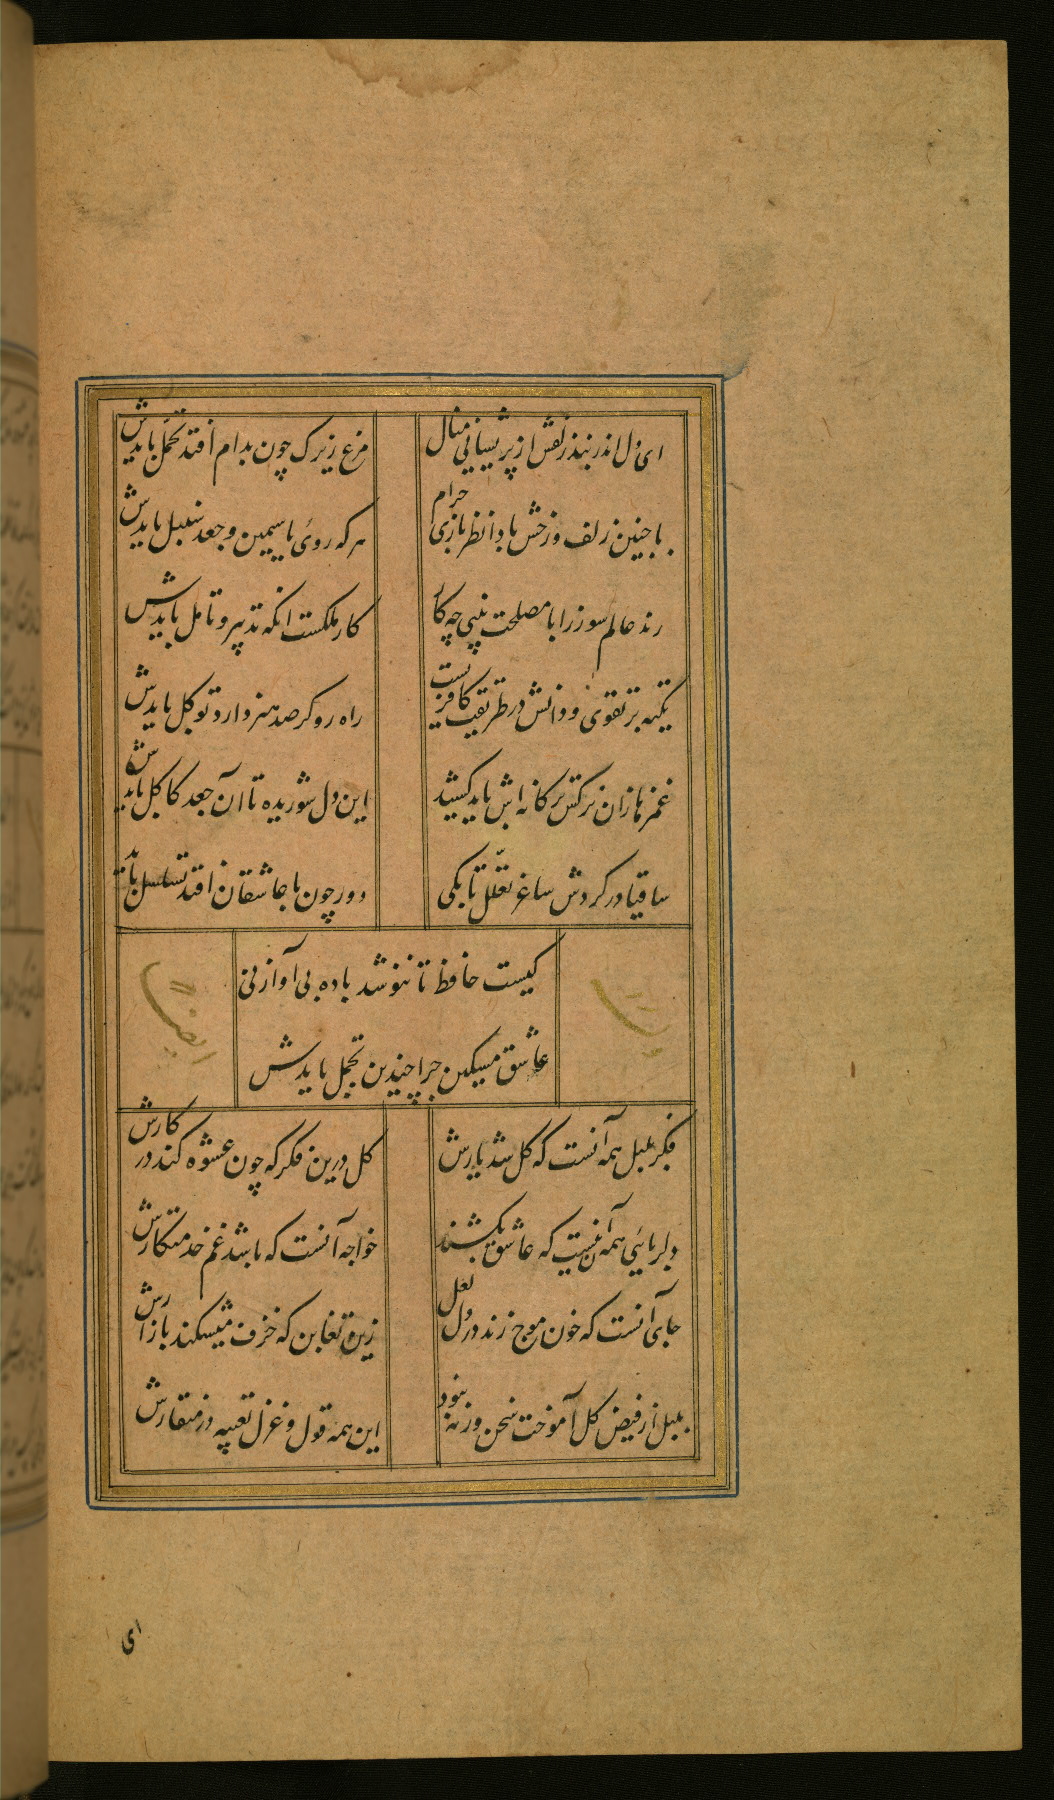 ای دل اندر بند زلفش از پریشانی منال
مرغ زیرک چون بدام افتد تحمل بایدش
با چنین زلف و رخش بادا نظر بازی حرام
هر که روی یاسمین و جعد سنبل بایدش
رند عالم سوز را با مصلحت بینی چه کار
کار ملکست انکه تدبیر و تامل بایدش
تکیه بر تقوی و دانش در طریقت کافریست
راه رو گر صد هنر دارد توکل بایدش
این دل شوریده تا آن جعد کاکل بایدش
ساقیا در گردش ساغر تعلل تا بکی
دور چون با عاشقان افتد تسلسل بایدش
کیست حافظ تا ننوشد باده بی آواز نی
عاشق مسکین چرا چندین تجمل بایدش
فکر بلبل همه آنست که گل شد یارش
گل درین فکر که چون عشوه کند در کارش
دلربائی همه آن نیست که عاشق بکشند
خواجه آنست که باشد غم خدمتکارش
جای آنست که خون موج زند در دل لعل
زین تغابن که خزف میشکند بازارش
بلبل از فیض گل آموخت سخن ورنه نبود
این همه قول و غزل تعبیه در منقارش
ای